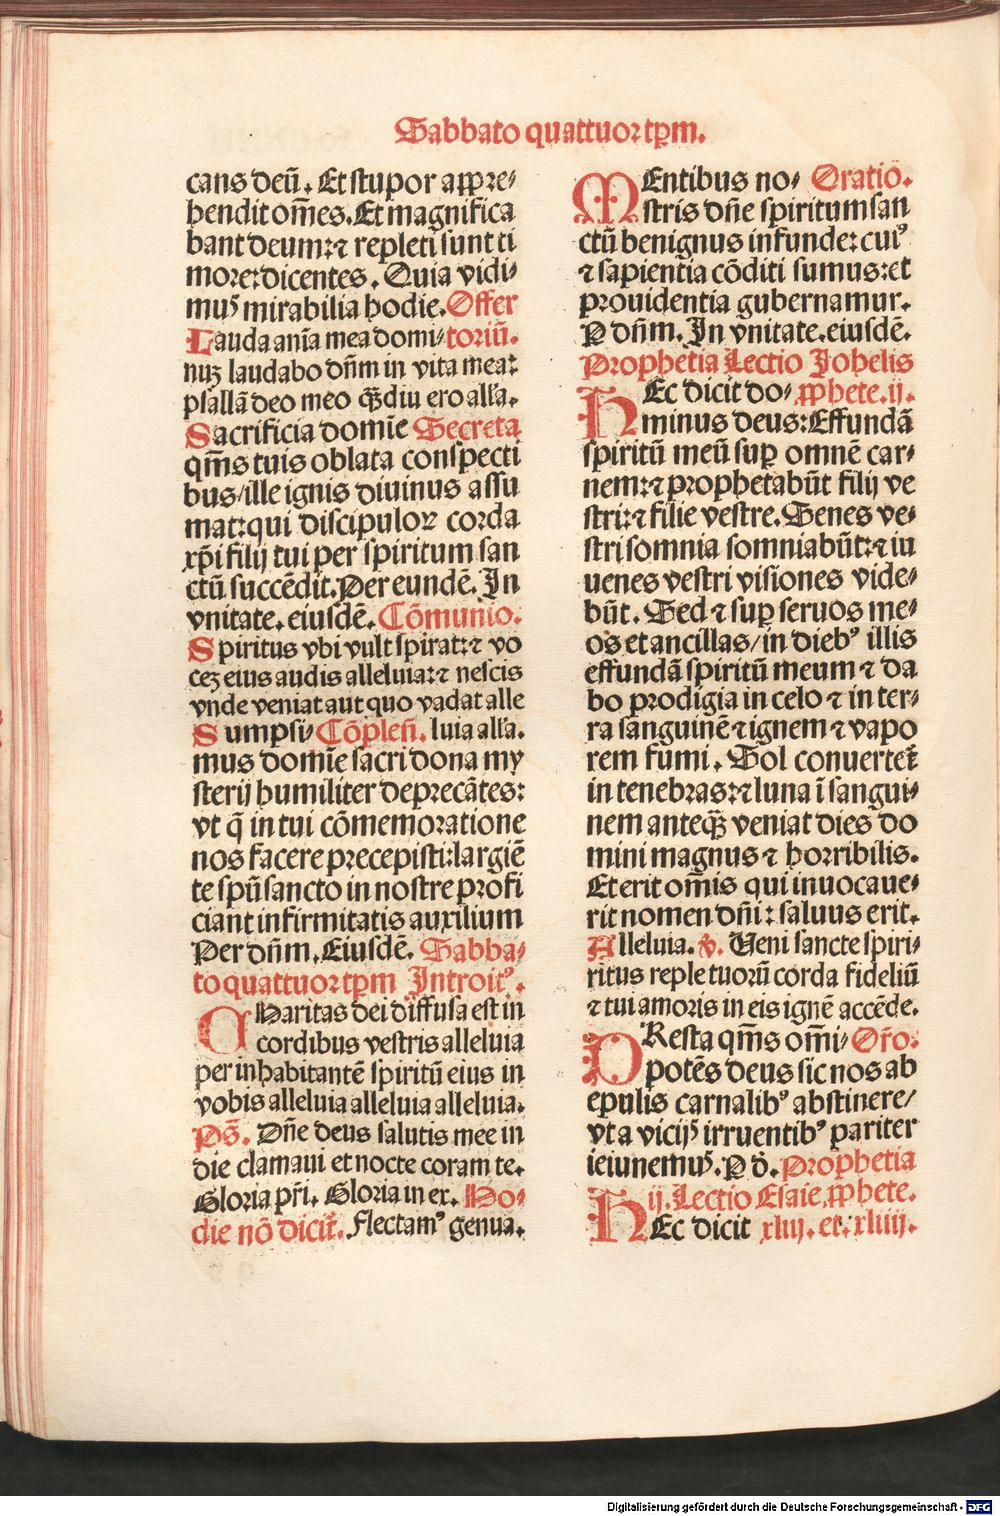 Sabbato quattuor tꝑm.
cans deū. Et stupor appre⸗
hendit om̄es. Et magnifica
bant deum: ⁊ repleti sunt ti
more: dicentes. Quia vidi⸗
mus mirabilia hodie. Offer
Lauda anīa mea domi⸗ toriū.
nuꝫ laudabo dn̄m in vita mea:
psallā deo meo qȝdiu ero all'a.
Sacrificia domīe Secreta
qm̄s tuis oblata conspecti
bus/ ille ignis diuinus assu
mat: qui discipuloꝝ corda
xp̄i filij tui per spiritum san
ctū succēdit. Per eundē. In
vnitate. eiusdē. Cōmunio.
Spiritus vbi vult spirat: ⁊ vo
ceꝫ eius audis alleluia: ⁊ nescis
vnde veniat aut quo vadat alle
Sumpsi⸗ Cōpleñ. luia all'a.
mus domīe sacri dona my
sterij humiliter deprecātes:
vt q̄ in tui cōmemoratione
nos facere precepisti: largiē
te spū sancto in nostre profi
ciant infirmitatis auxilium
Per dn̄m. Eiusdē. Sabba⸗
to quattuor tꝑm Introitꝰ.
CHaritas dei diffusa est in
cordibus vestris alleluia
per inhabitantē spiritū eius in
vobis alleluia alleluia alleluia.
Ps̄. Dn̄e deus salutis mee in
die clamaui et nocte coram te.
Gloria pr̄i. Gloria in ex. Ho⸗
die nō dicit̄. Flectamꝰ genua.
MEntibus no⸗ Oratio.
stris dn̄e spiritum san
ctū benignus infunde: cuiꝰ
⁊ sapientia cōditi sumus: et
prouidentia gubernamur.
P dn̄m. In vnitate. eiusdē.
Prophetia Lectio Johelis
HEc dicit do⸗ ꝓphete. ij.
minus deus: Effundā
spiritū meū suꝑ omnē car⸗
nem: ⁊ prophetabūt filij ve
stri: ⁊ filie vestre. Senes ve⸗
stri somnia somniabūt: ⁊ iu
uenes vestri visiones vide⸗
būt. Sed ⁊ suꝑ seruos me⸗
os et ancillas/ in diebꝰ illis
effundā spiritū meum ⁊ da
bo prodigia in celo ⁊ in ter⸗
ra sanguinē ⁊ ignem ⁊ vapo
rem fumi. Sol conuertet̄
in tenebras: ⁊ luna ī sangui⸗
nem anteqȝ veniat dies do
mini magnus ⁊ horribilis.
Et erit om̄is qui inuocaue⸗
rit nomen dn̄i: saluus erit.
Alleluia. ꝟ. Ueni sancte spiri⸗
ritus reple tuorū corda fideliū
⁊ tui amoris in eis ignē accēde.
PResta qm̄s om̄i⸗ Or̄o.
potēs deus sic nos ab
epulis carnalibꝰ abstinere/
vt a vicijs irruentibꝰ pariter
ieiunemus. P d̄. Prophetia
ij. Lectio Esaie ꝓphete.
HEc dicit xliij. et. xliiij.
Digitalisierung gefördert durch die Deutsche Forschungsgemeinschaft - DFG